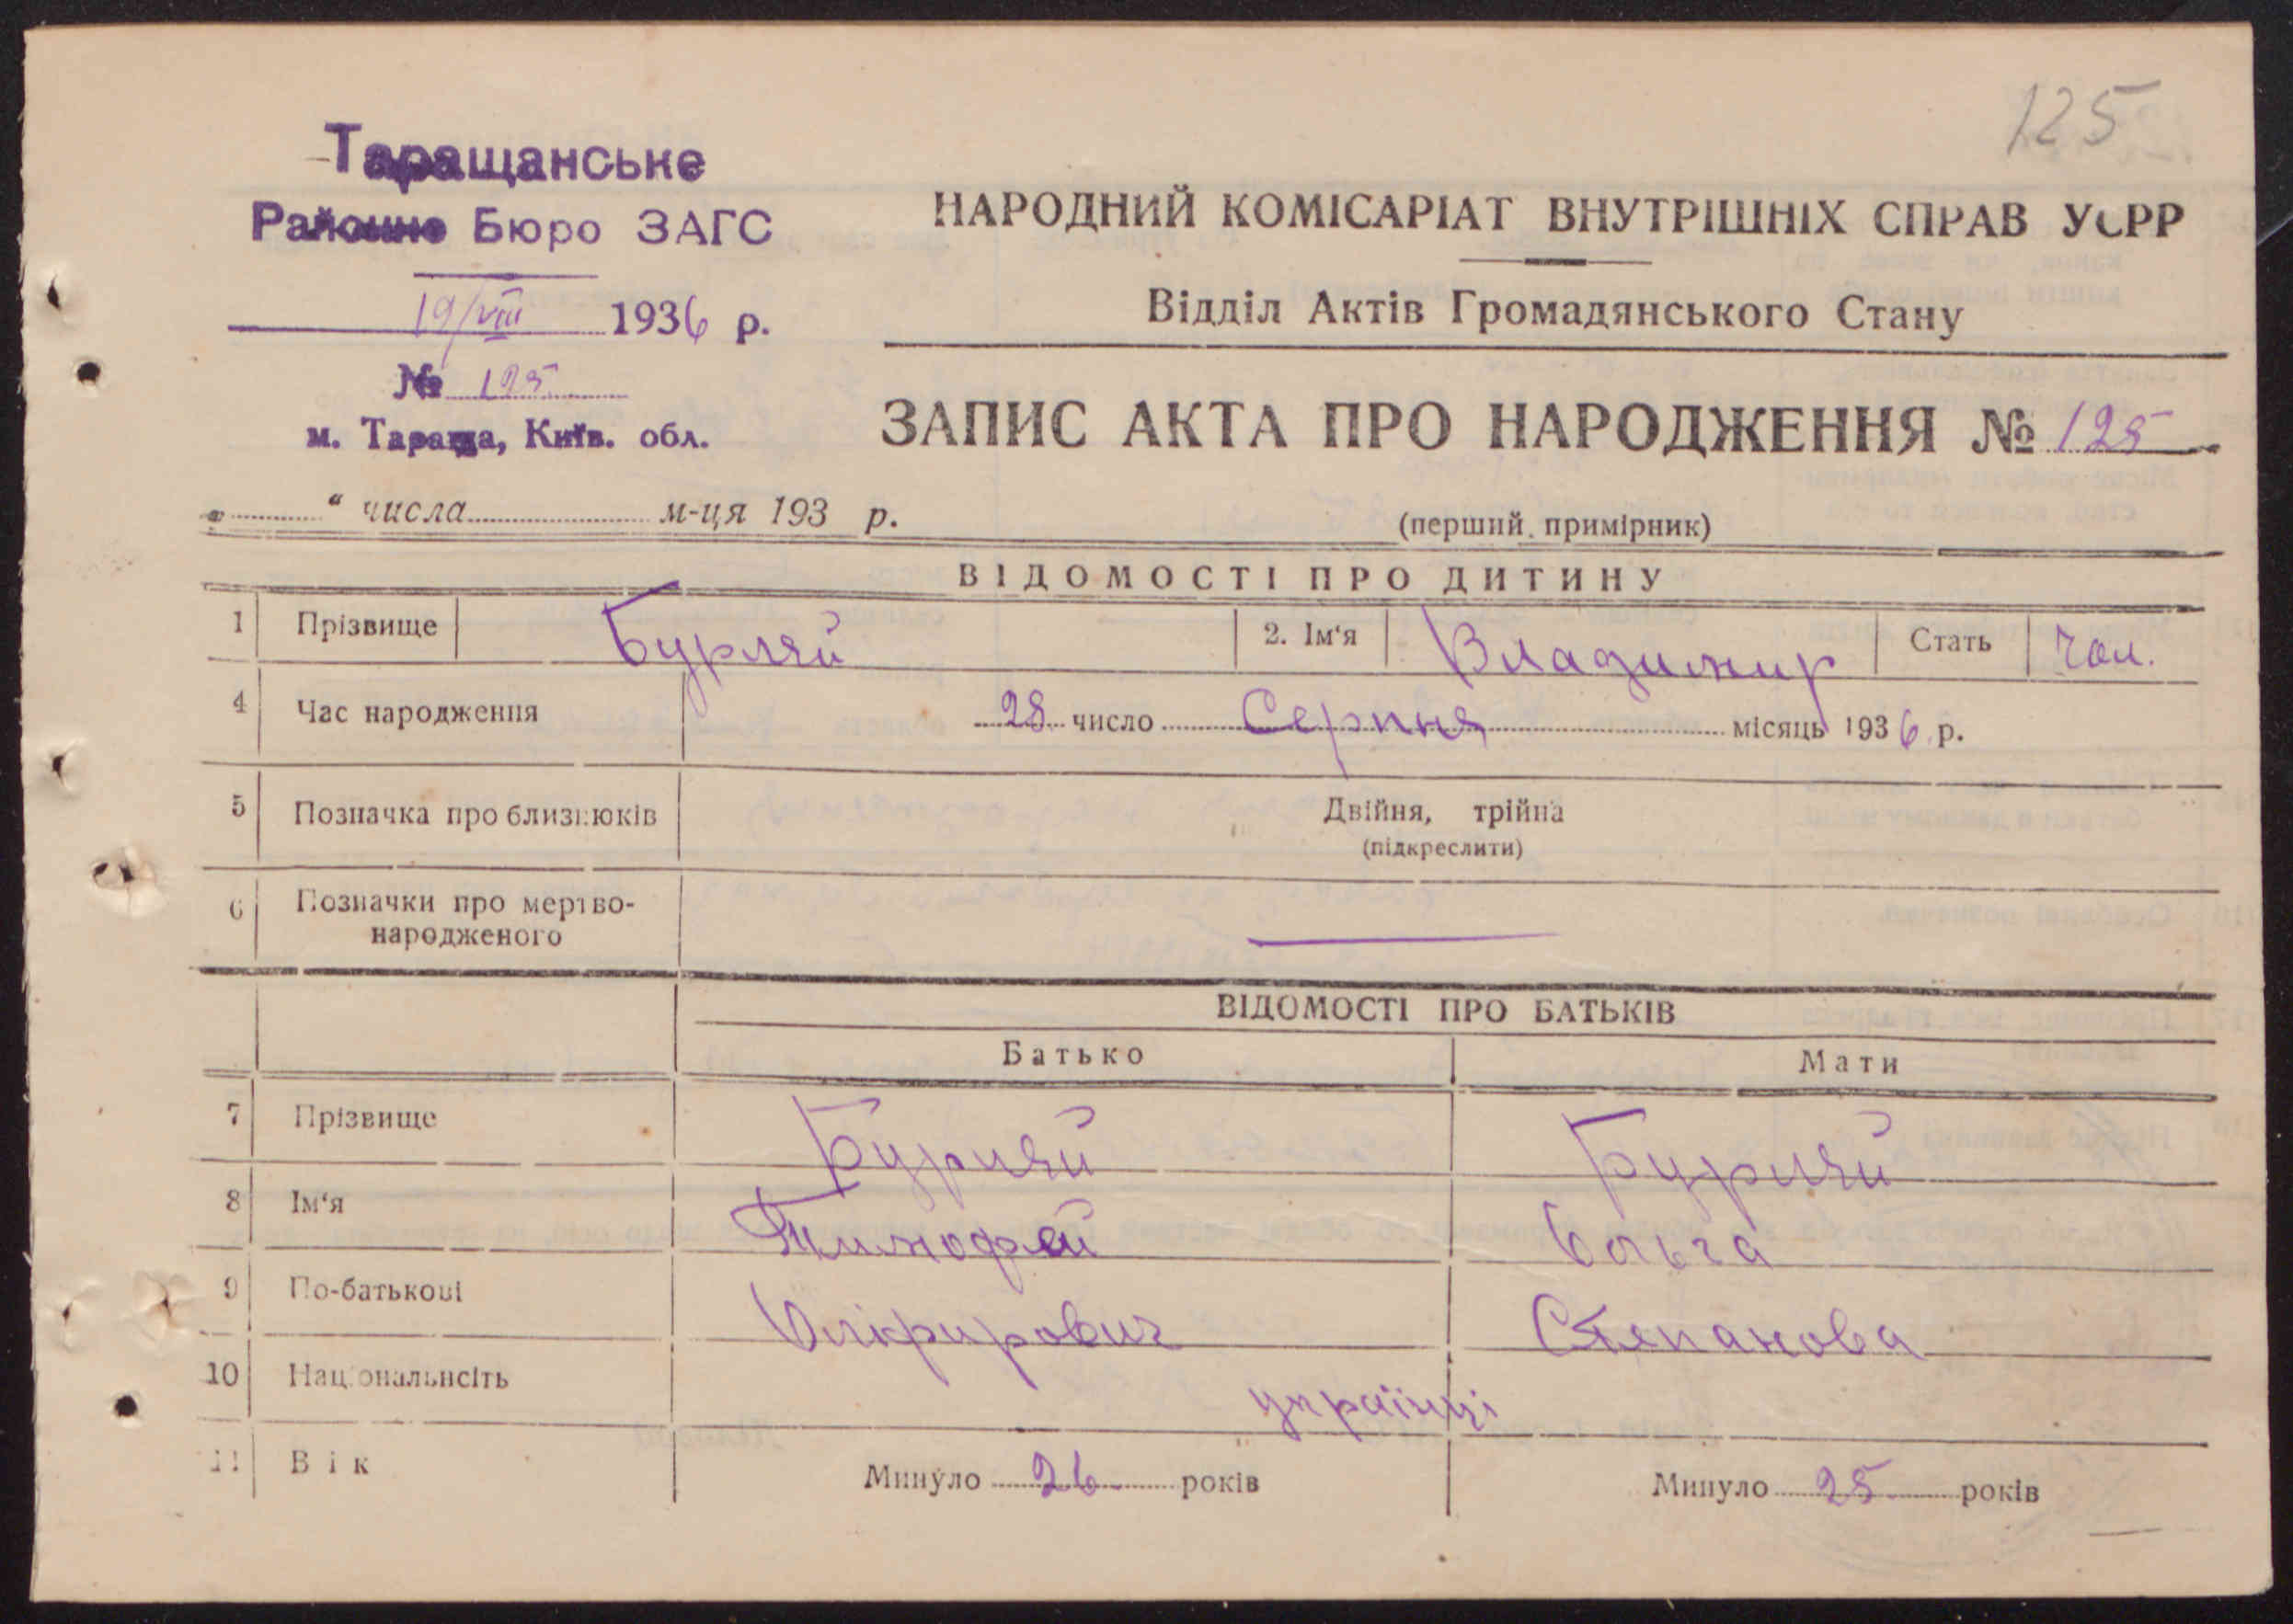 125
Таращанське
Районне Бюро ЗАГС
19/VIII 1936 р.
№ 125
м. Тараща, Київ. обл.
НАРОДНИЙ КОМІСАРІАТ ВНУТРІШНІХ СПРАВ УСРР
Відділ Актів Громадянського Стану
ЗАПИС АКТА ПРО НАРОДЖЕННЯ № 125
„ “ числа м-ця 193 р.
(перший примірник)
ВІДОМОСТІ ПРО ДИТИНУ
1 Прізвище Бурляй 2. Ім‘я Владимир Стать Чол.
4 Час народження 28 число Серпня місяць 1936 р.
5 Позначка про близнюків Двійня, трійна
(підкреслити)
6 Позначки про мертво-
народженого
ВІДОМОСТІ ПРО БАТЬКІВ
Батько Мати
7 Прізвище Бурляй Бурляй
8 Ім‘я Тимофей Ольга
9 По-батькові Степанова
10 Національнсіть українці
11 Вік Минуло 26 років Минуло 25 років